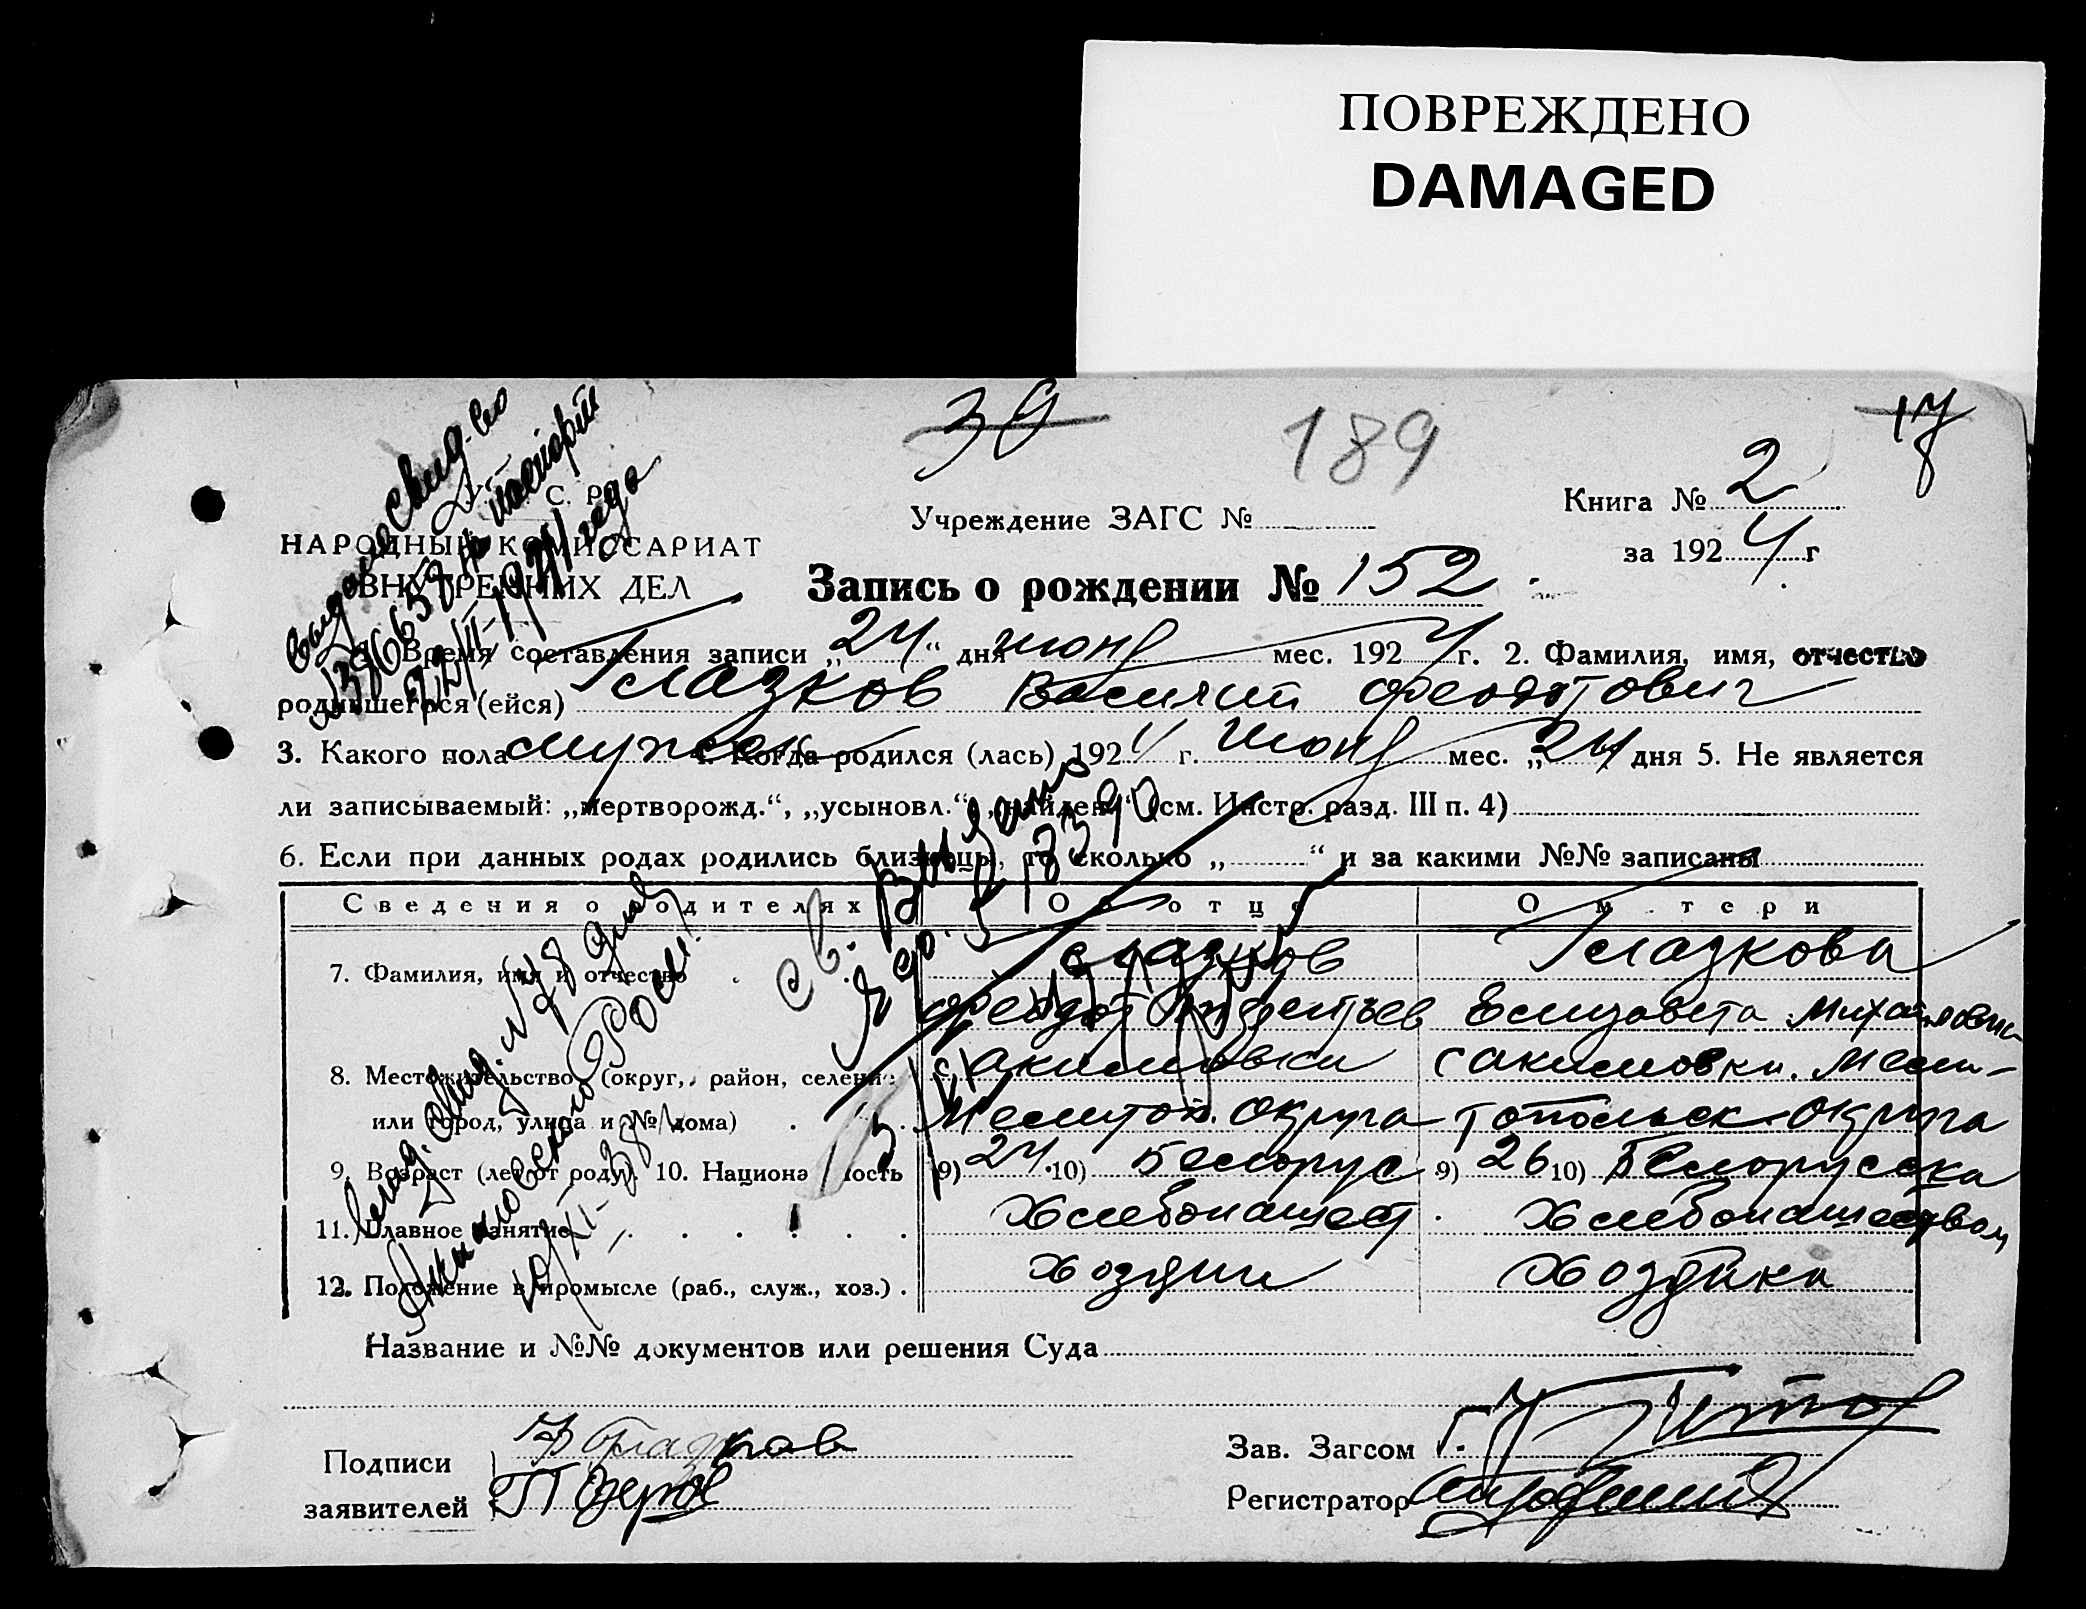 ПОВРЕЖДЕНО
DAMAGED
39
189
17
С. Р.
Учреждение ЗАГС №
Книга № 2
НАРОДНЫЙ КОМИССАРИАТ
за 1924 г
ВНУТРЕННИХ ДЕЛ
Запись о рождении № 152
Время составления записи „24“ дня июня мес. 1924 г. 2. Фамилия, имя, отчество
родившегося (ейся) Глазков Василий Феодотович
3. Какого пола мужск 4. Когда родился (лась) 1924 г. июня мес. „24 дня 5. Не является
ли записываемый: „мертворожд.“, „усыновл.“, „найден“ (см. Инстр. разд. III п. 4)
6. Если при данных родах родились близнецы, то сколько „ “ и за какими №№ записаны
Сведения о родителях Об отце О матери
7. Фамилия, имя и отчество Глазков Глазкова
Феодот Елизавета Михайловна
8. Местожительство (округ, район, селение с акимовки с акимовки. Мели-
или город, улица и № дома) Мелитоп. округа топольск округа
9. Возраст (лет от роду). 10. Национальность 9) 24. 10) Белорус 9) 26 10) Белорусска
11. Главное занятие Хлебопашест. Хлебопашеством
12. Положение в промысле (раб., служ., хоз.) Хозяин Хозяйка
Название и №№ документов или решения Суда
Подписи Ф Глазков Зав. Загсом Г. Титов
заявителей Регистратор
выдано свид-во
паспорт
1941 года
св. Выдано
выд. свид. № 48 для
Акимовского